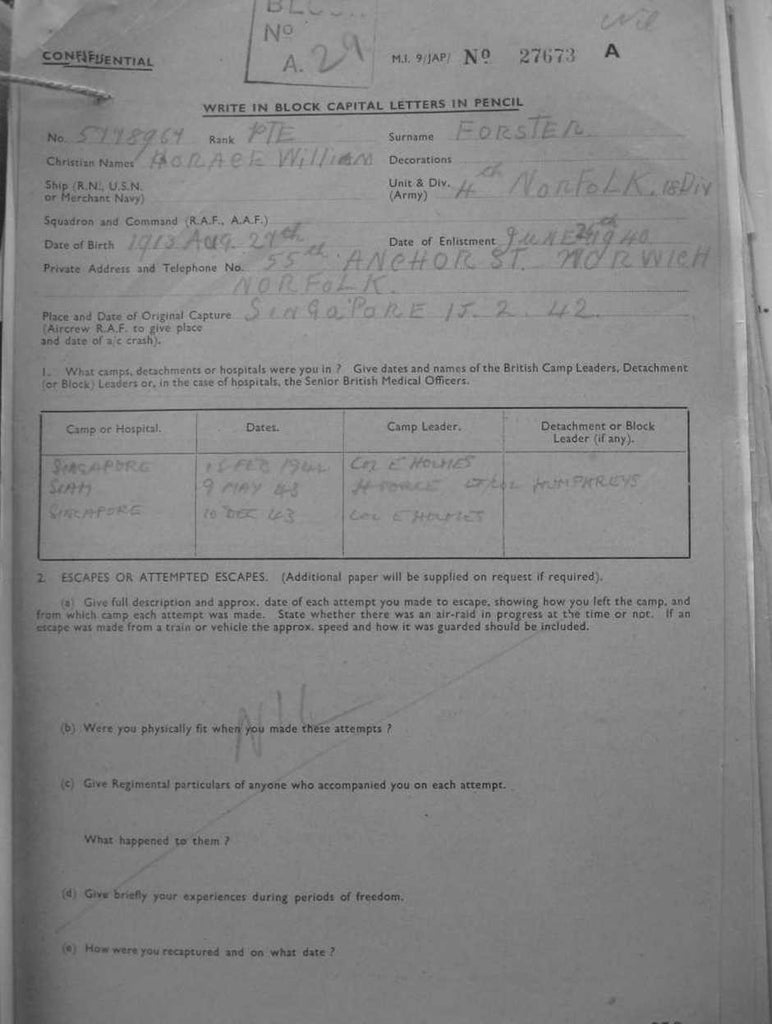 No
A. 29
CONFIDENTIAL M.I. 9/JAP/ No 27673 A
WRITE IN BLOCK CAPITAL LETTERS IN PENCIL
No. 5778964 Rank PTE Surname FORSTER
Christian Names HORACE WilliAM Decorations
Ship (R.N., U.S.N. or Merchant Navy) Unit & Div. (Army) 4th NORFOLK. 18 Div
Squadron and Command (R.A.F., A.A.F.)
Date of Birth 1913 AUG. 27th Date of Enlistment JUNE 1940
Private Address and Telephone No. 55 ANCHOR ST. NORWICH
NORFOLK.
Place and Date of Original Capture SINGAPORE 15. 2. 42.
(Aircrew R.A.F. to give place
and date of a/c crash).
1. What camps, detachments or hospitals were you in ? Give dates and names of the British Camp Leaders, Detachment
(or Block) Leaders or, in the case of hospitals, the Senior British Medical Officers.
Camp or Hospital. Dates. Camp Leader. Detachment or Block Leader (if any).
SINGAPORE 15 FEB 1942 COL E HOLMES
SIAM 9 MAY 43 H FORCE LT/COL HUMPHREYS
SINGAPORE 10 DEC 43 COL E HOLMES
2. ESCAPES OR ATTEMPTED ESCAPES. (Additional paper will be supplied on request if required).
(a) Give full description and approx. date of each attempt you made to escape, showing how you left the camp, and
from which camp each attempt was made. State whether there was an air-raid in progress at the time or not. If an
escape was made from a train or vehicle the approx. speed and how it was guarded should be included.
NIL
(b) Were you physically fit when you made these attempts ?
(c) Give Regimental particulars of anyone who accompanied you on each attempt.
What happened to them ?
(d) Give briefly your experiences during periods of freedom.
(e) How were you recaptured and on what date ?